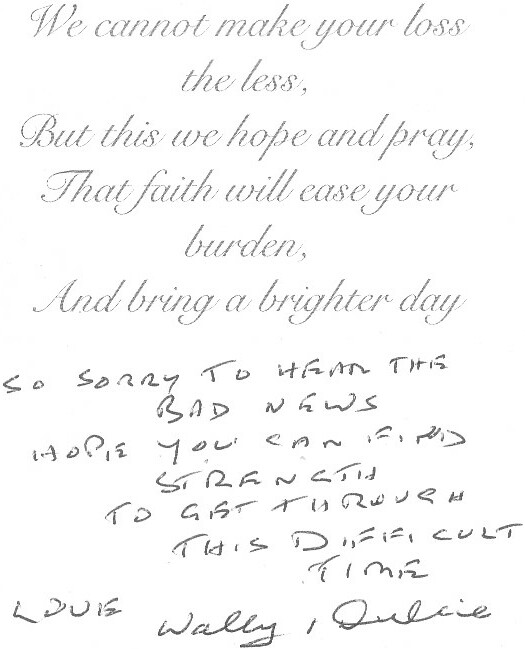 We cannot make your loss
the less,
But this we hope and pray,
That faith will ease your
burden,
And bring a brighter day
SO SORRY TO HEAR THE
BAD NEWS
HOPE YOU CAN FIND
STRENGTH
TO GET THROUGH
THIS DIFFICULT
TIME
LOVE Wally,